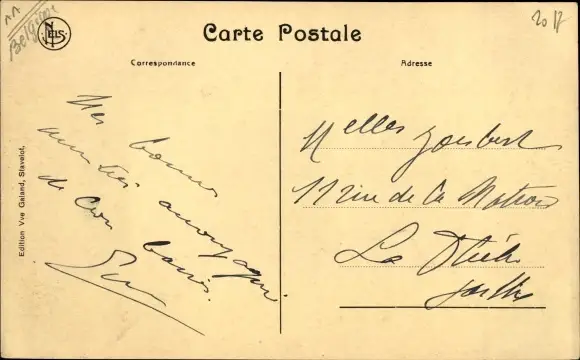 Belgique
NELS
20 17
Carte Postale
Correspondance
Adresse
Edition Vve Galand, Stavelot.
Mes bonnes
amitiés
de bons baisers.
Melles Joubert
11 rue de la
La Flèche
Sarthe